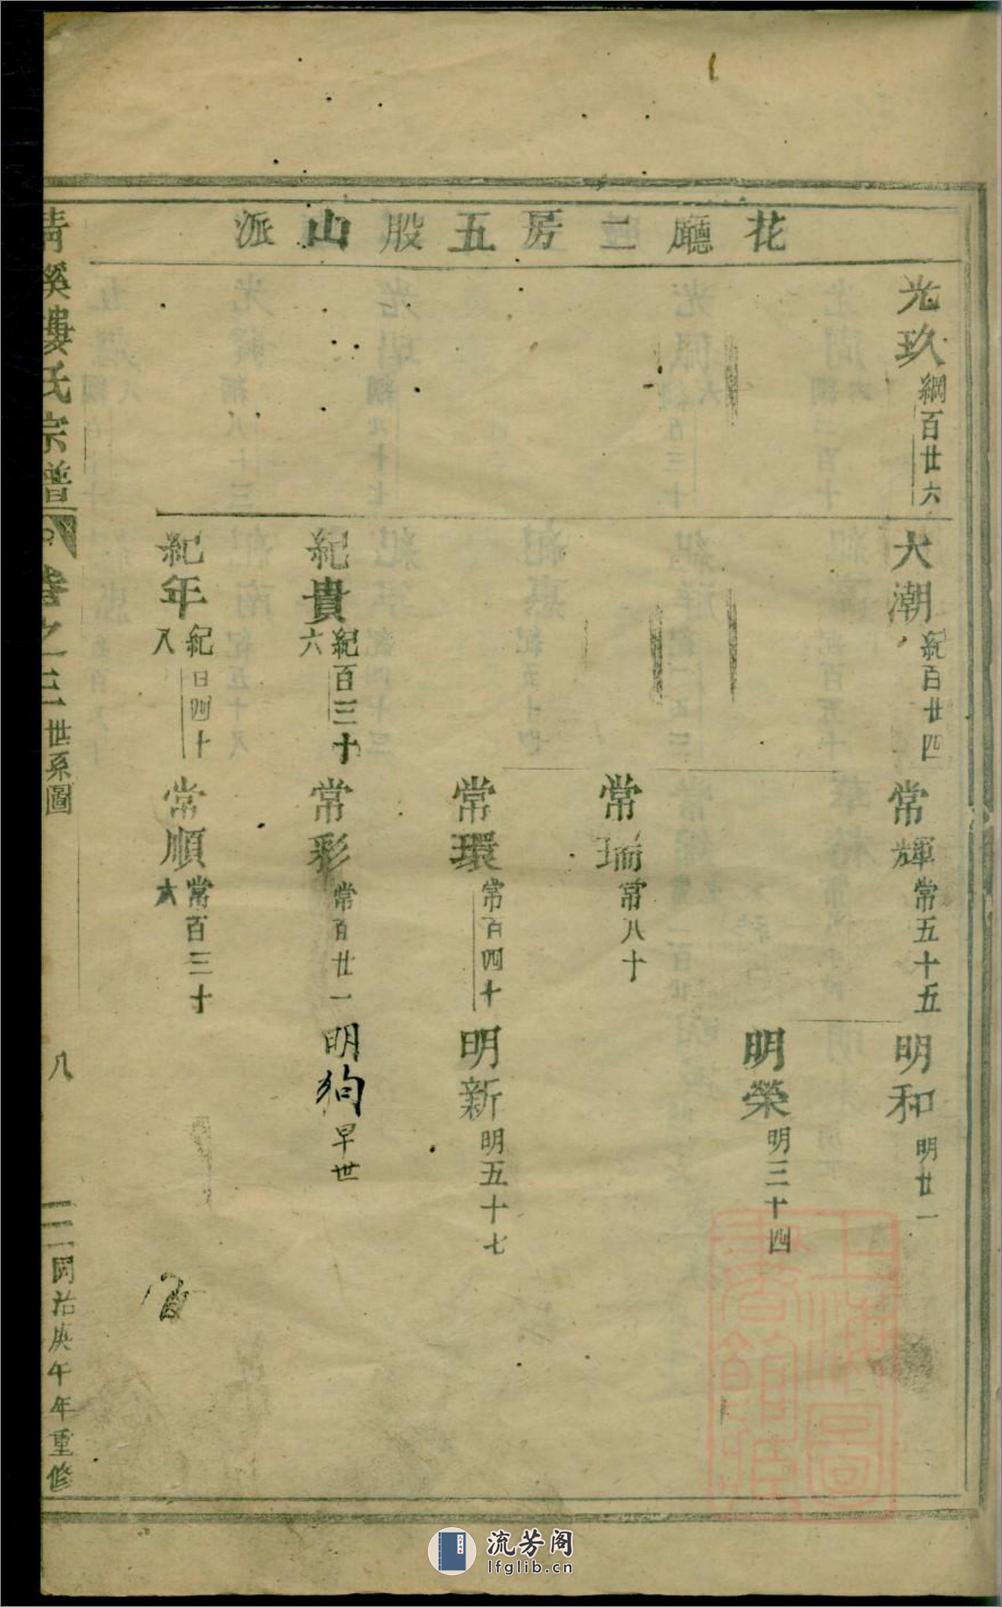 花廳二房五股山派
光玖 綱百廿六
大潮 紀百廿四
常輝 常五十五
明和 明廿一
明榮 明三十四
常瑞 常八十
常環 常百四十
明新 明五十七
紀貴 紀百三十六
常彩 常百廿一
明狗 早世
紀年 紀百四十八
常順 常百三十六
清溪婁氏宗譜 卷之三 世系圖 八 同治庚午年重修
上海圖書館藏
流芳阁
lfglib.cn